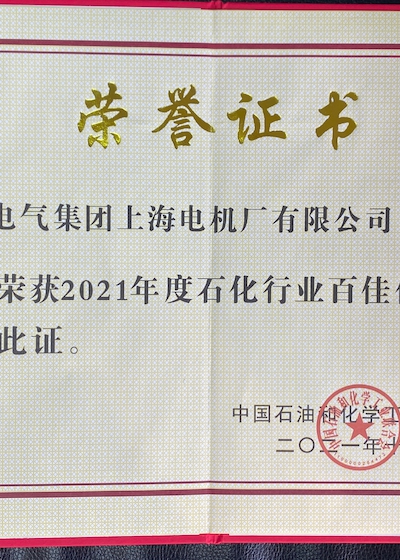 荣誉证书
电气集团上海电机厂有限公司
荣获2021年度石化行业百佳
此证。
中国石油和化学工
二〇二一年十